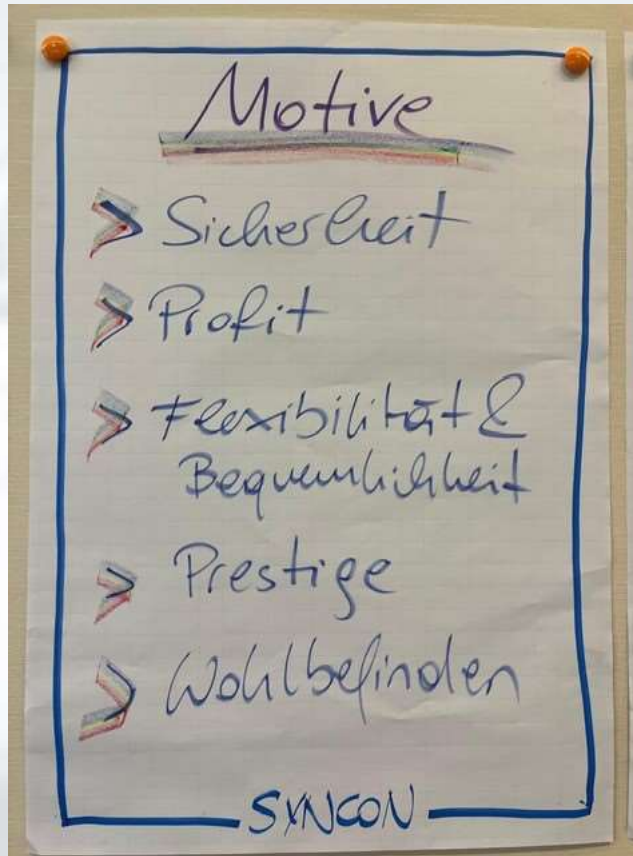 Motive
Sicherheit
Profit
Flexibilität &
Bequemlichkeit
Prestige
Wohlbefinden
SYNCON